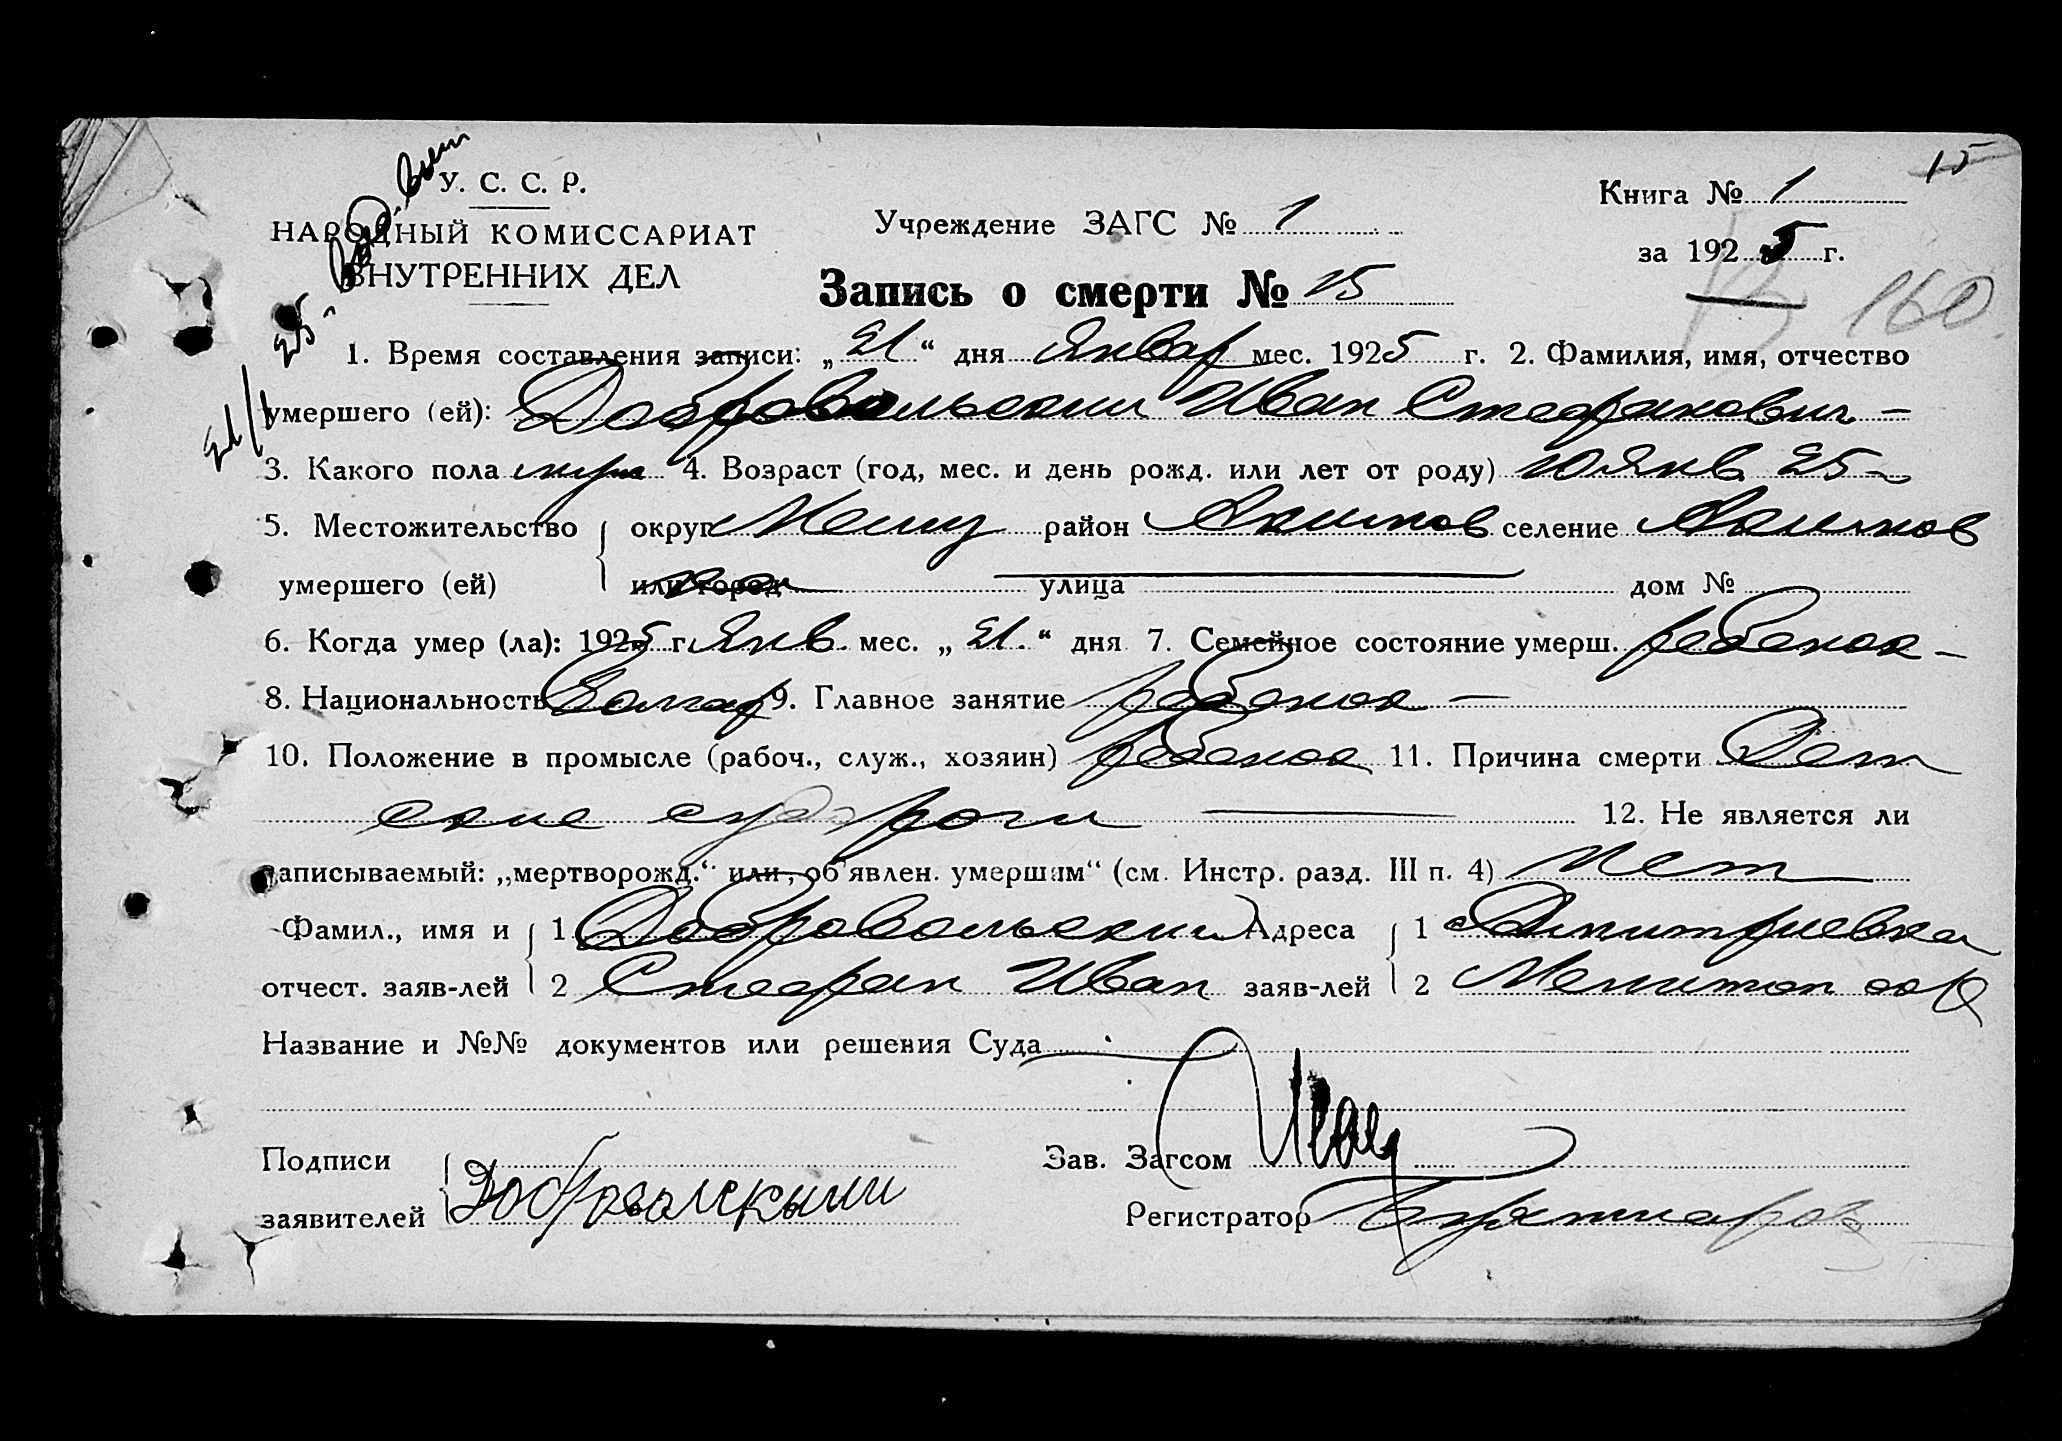 15
У. С. С. Р.
НАРОДНЫЙ КОМИССАРИАТ
ВНУТРЕННИХ ДЕЛ
21/I 25
Учреждение ЗАГС № 1
Книга № 1
за 1925 г.
160
Запись о смерти № 15
1. Время составления записи: „21“ дня Январ мес. 1925 г. 2. Фамилия, имя, отчество
умершего (ей): Добровольский Иван Стефанович
3. Какого пола муж 4. Возраст (год, мес. и день рожд. или лет от роду) 10 Янв. 25
5. Местожительство округ Мелит район Акимов селение Акимов
умершего (ей) или город улица дом №
6. Когда умер (ла): 1925 г. Янв. мес. „21“ дня 7. Семейное состояние умерш. ребенок
8. Национальность Болгар 9. Главное занятие ребенок
10. Положение в промысле (рабоч., служ., хозяин) ребенок 11. Причина смерти Дет
ские судороги 12. Не является ли
записываемый: „мертворожд.“ или „об'явлен. умершим“ (см. Инстр. разд. III п. 4) Нет
Фамил., имя и 1 Добровольский Адреса 1 Димитриевка
отчест. заяв-лей 2 Стефан Иван заяв-лей 2 Мелитоп
Название и №№ документов или решения Суда
Подписи Зав. Загсом
заявителей Регистратор